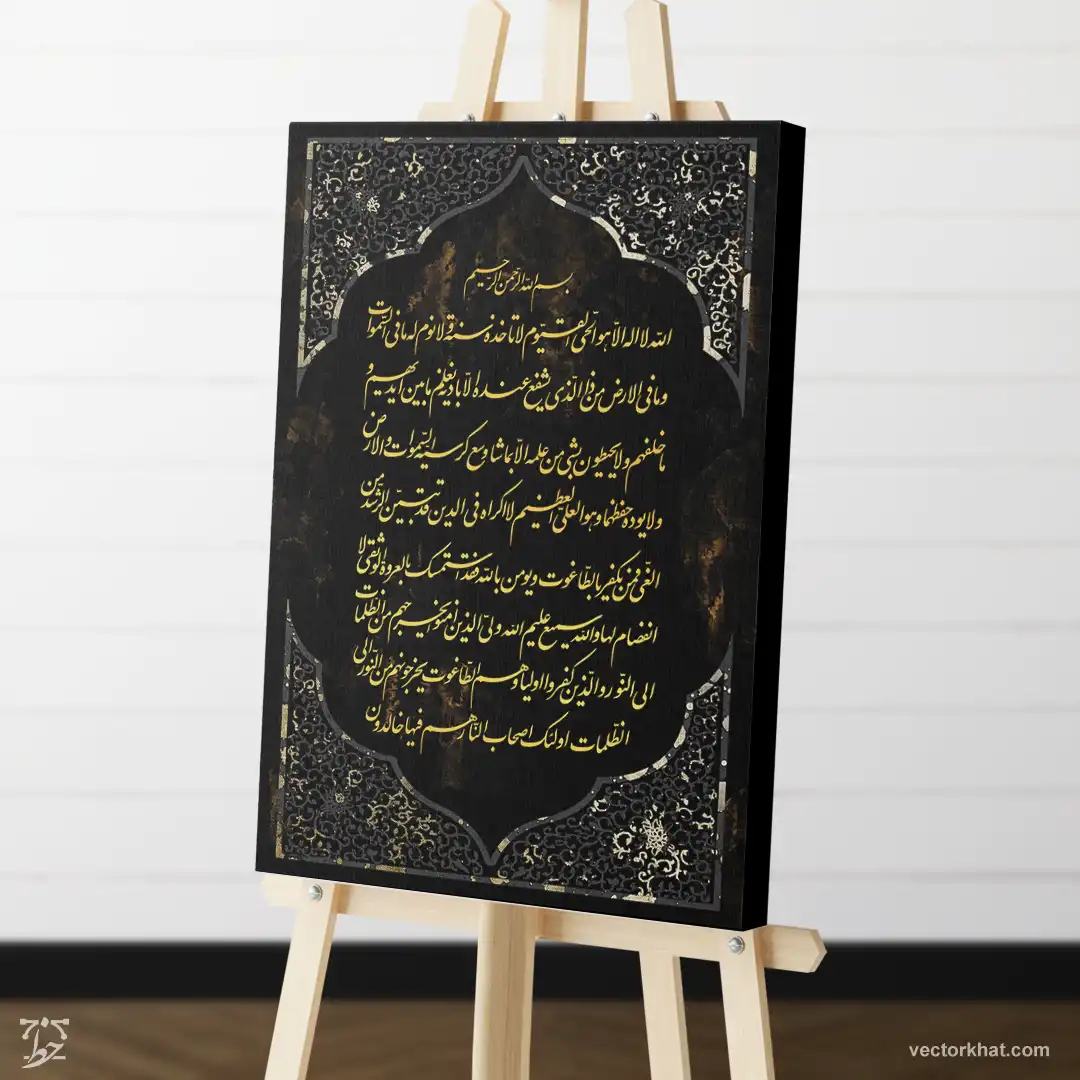 بسم الله الرّحمن الرّحیم
اللّه لا اله الّا هو الحیّ القیّوم لا تاخذه سنة ولا نوم له ما فی السّموات
وما فی الارض من ذا الّذی یشفع عنده الّا باذنه یعلم ما بین ایدیهم و
ما خلفهم ولا یحیطون بشی من علمه الّا بما شا وسع کرسیّه السّموات والارض
ولا یوده حفظهما وهو العلیّ العظیم لا اکراه فی الدین قد تبیّن الرّشد من
الغی فمن یکفر بالطّاغوت ویومن باللّه فقد استمسک بالعروة الوثقی لا
انفصام لها واللّه سمیع علیم اللّه ولیّ الذین آمنوا یخرجهم من الظّلمات
الی النّور والّذین کفروا اولیاوهم الطّاغوت یخرجونهم من النّور الی
الظّلمات اولئک اصحاب النّار هم فیها خالدون
خط
vectorkhat.com